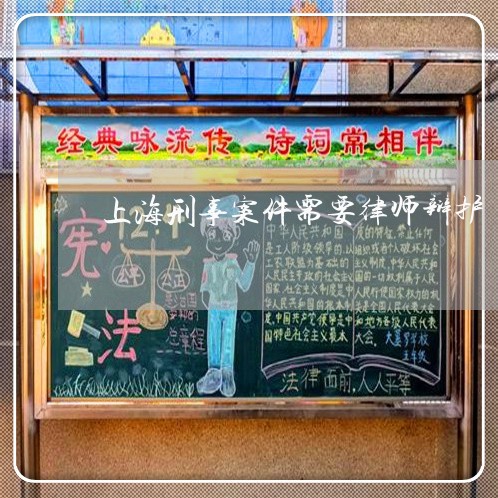 经典咏流传 诗词常相伴
上海刑事案件需要律师辩护
宪法
12.4
公平 公正
总章程
中华人民共和国
是工人阶级领导的,以
工农联盟为基础的
人民民主专政的社会主义
国家。社会主义制度是中
华人民共和国的根本制
度。中国共产党领导是中
国特色社会主义最本
质的特征。禁止任何
组织或者个人破坏社会
主义制度。中华人民共和
国的一切权利属于人民。
人民行使国家权力的机
关是全国人民代表大会
和地方各级人民代表
大会。
学校
五年级
法律面前,人人平等